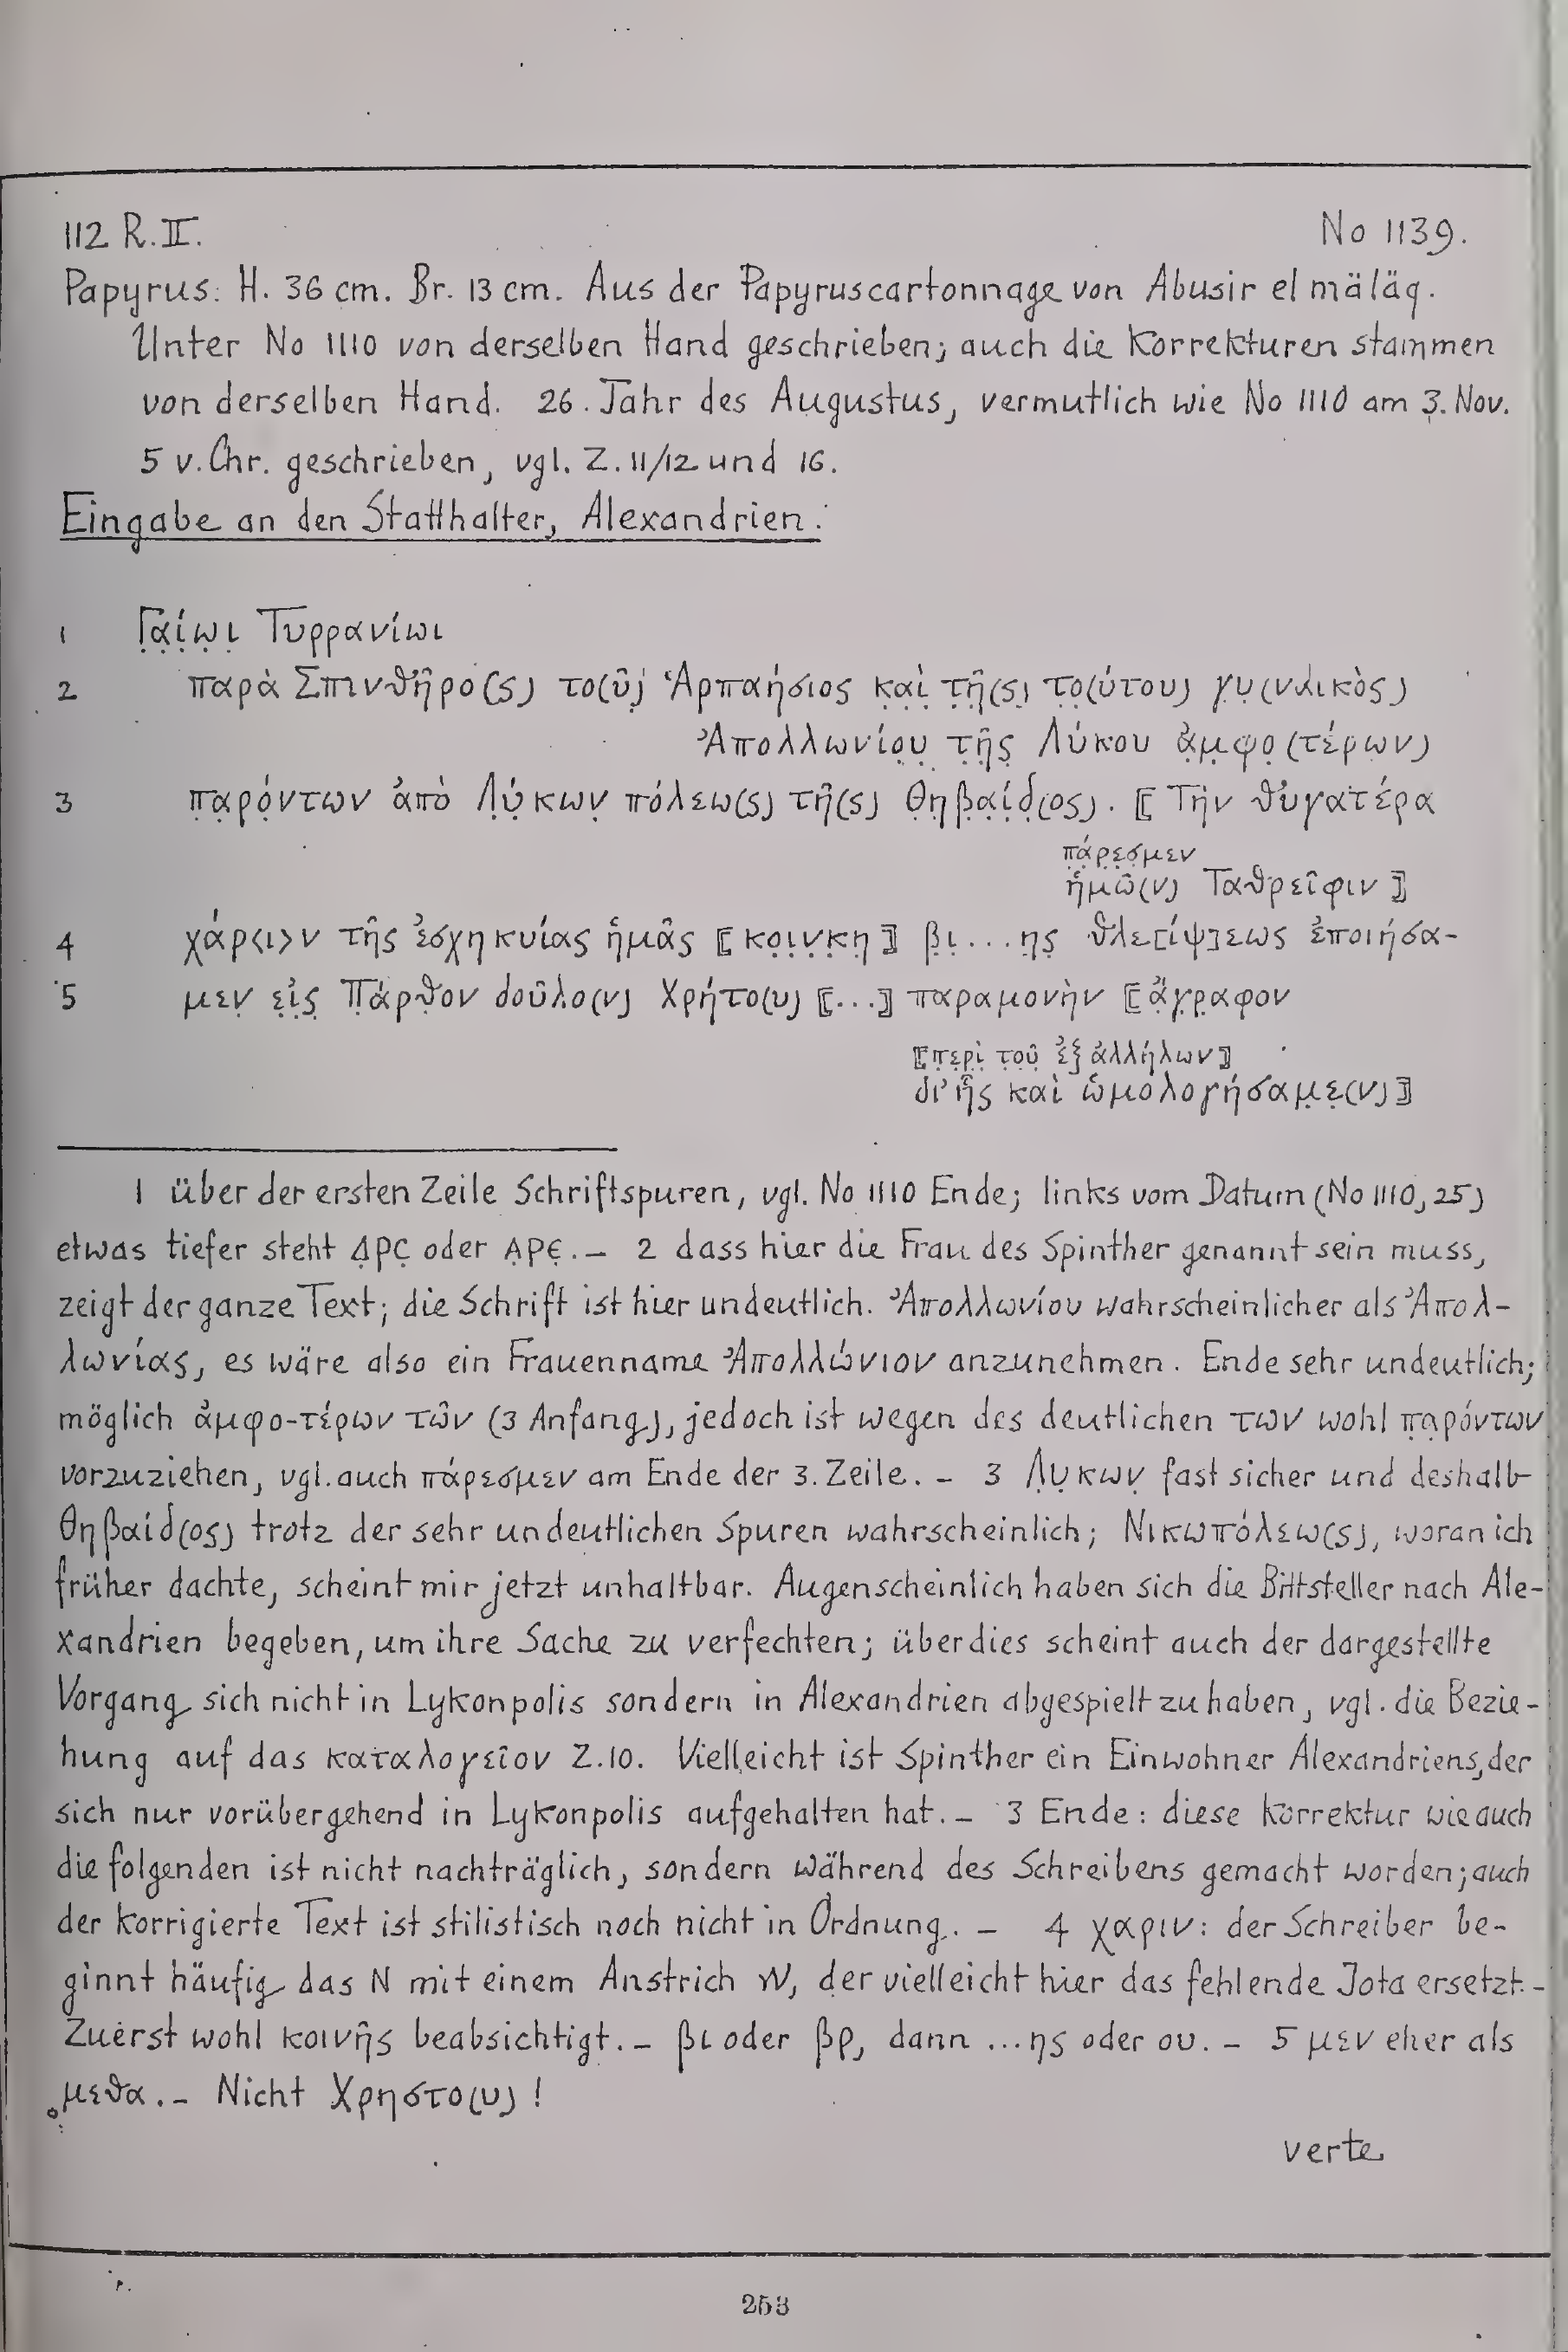 112 R.II. No 1139.
Papyrus: H. 36 cm. Br. 13 cm. Aus der Papyruscartonnage von Abusir el mäläq.
Unter No 1110 von derselben Hand geschrieben; auch die Korrekturen stammen
von derselben Hand. 26. Jahr des Augustus, vermutlich wie No 1110 am 3. Nov.
5 v. Chr. geschrieben, vgl. Z. 11/12 und 16.
Eingabe an den Statthalter, Alexandrien:
1 Γ̣α̣ί̣ω̣ι̣ Τυρρανίωι
2 παρὰ Σπινθῆρο(ς) το(ῦ) Ἁρπαήσιος κ̣α̣ὶ̣ τ̣ῆ̣(ς) τ̣ο̣(ύτου) γ̣υ̣(ναικὸς)
Ἀπολλωνίο̣υ̣ τ̣ῆ̣ς̣ Λύκου ἀ̣μ̣φ̣ο̣(τέρων)
3 π̣α̣ρ̣ό̣ντων ἀπὸ Λ̣ύ̣κων̣ πόλεω(ς) τῆ(ς) Θ̣η̣β̣α̣ί̣δ̣(ος). ⟦Τὴν θυγατέρα
π̣ά̣ρ̣ε̣σ̣μεν
ἡμῶ(ν) Ταθρεῖφιν⟧
4 χάρ<ι>ν τῆς ἐσχηκυίας ἡμᾶς ⟦κο̣ι̣ν̣κ̣η̣⟧ β̣ι̣...η̣ς θλε[ίψ]εως ἐποιήσα-
5 μεν̣ ε̣ἰ̣ς̣ Π̣ά̣ρ̣θον δοῦλο(ν) Χρήτο(υ) ⟦...⟧ παραμονὴν ⟦ἄ̣γ̣ρ̣αφον
⟦π̣ε̣ρ̣ὶ̣ τ̣ο̣ῦ̣ ἐξ ἀλλήλων⟧
δι' ἧς καὶ ὡμολογήσαμ̣ε̣(ν)⟧
1 über der ersten Zeile Schriftspuren, vgl. No 1110 Ende; links vom Datum (No 1110, 25)
etwas tiefer steht Δ̣ΡϹ̣ oder Α̣ΡЄ̣. – 2 dass hier die Frau des Spinther genannt sein muss,
zeigt der ganze Text; die Schrift ist hier undeutlich. Ἀπολλωνίου wahrscheinlicher als Ἀπολ-
λωνίας, es wäre also ein Frauenname Ἀπολλώνιον anzunehmen. Ende sehr undeutlich;
möglich ἀμφο-τέρων τῶν (3 Anfang), jedoch ist wegen des deutlichen των wohl π̣α̣ρ̣όντων
vorzuziehen, vgl. auch πάρεσμεν am Ende der 3. Zeile. – 3 Λ̣υ̣κων̣ fast sicher und deshalb
Θηβαίδ(ος) trotz der sehr undeutlichen Spuren wahrscheinlich; Νικωπόλεω(ς), woran ich
früher dachte, scheint mir jetzt unhaltbar. Augenscheinlich haben sich die Bittsteller nach Ale-
xandrien begeben, um ihre Sache zu verfechten; überdies scheint auch der dargestellte
Vorgang sich nicht in Lykonpolis sondern in Alexandrien abgespielt zu haben, vgl. die Bezie-
hung auf das καταλογεῖον Z. 10. Vielleicht ist Spinther ein Einwohner Alexandriens, der
sich nur vorübergehend in Lykonpolis aufgehalten hat. – 3 Ende: diese Korrektur wie auch
die folgenden ist nicht nachträglich, sondern während des Schreibens gemacht worden; auch
der korrigierte Text ist stilistisch noch nicht in Ordnung. – 4 χαριν: der Schreiber be-
ginnt häufig das N mit einem Anstrich, der vielleicht hier das fehlende Jota ersetzt. –
Zuerst wohl κοινῆς beabsichtigt. – βι oder βρ, dann ...ης oder ου. – 5 μεν eher als
μεθα. – Nicht Χρηστο(υ)!
verte
253